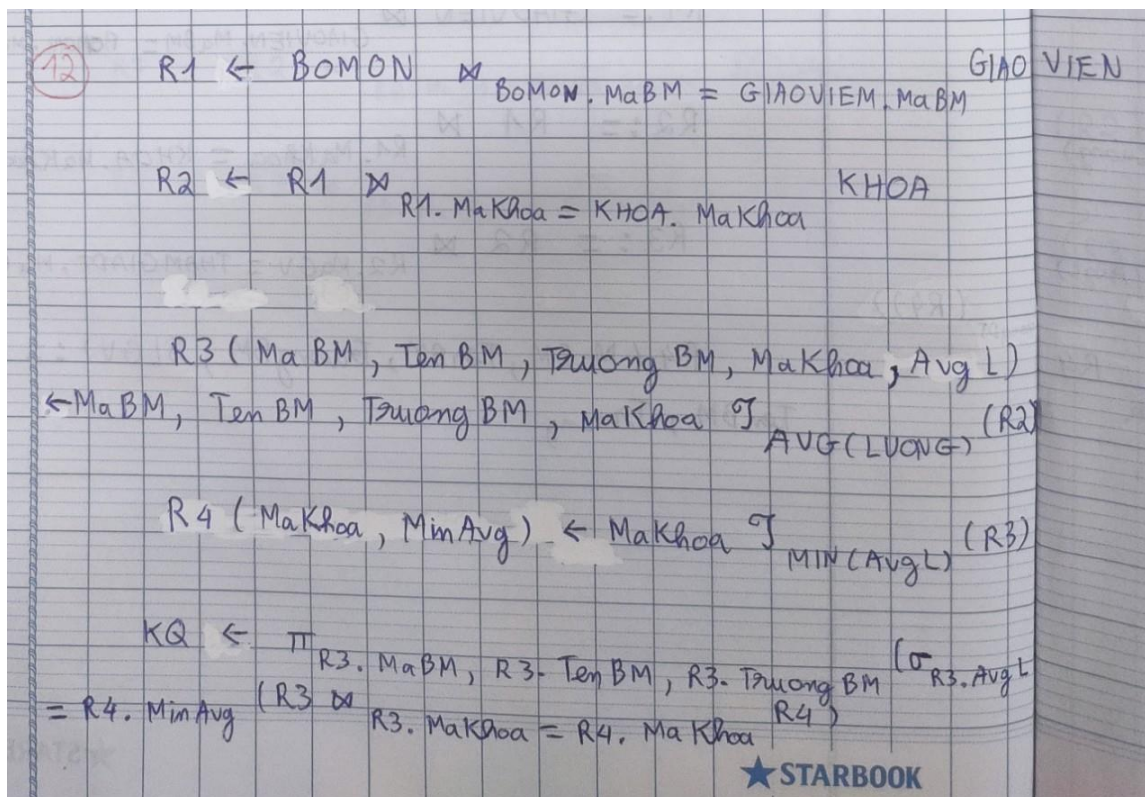 12 R1 ← BOMON ⋈ BOMON.MaBM = GIAOVIEM.MaBM GIAO VIEN
R2 ← R1 ⋈ R1.MaKhoa = KHOA.MaKhoa KHOA
R3 (MaBM, TenBM, Truong BM, MaKhoa, AvgL)
← MaBM, Ten BM, Truong BM, MaKhoa ℱ AVG(LUONG) (R2)
R4 (MaKhoa, MinAvg) ← MaKhoa ℱ MIN(AvgL) (R3)
KQ ← π R3.MaBM, R3.TenBM, R3.Truong BM (σ R3.AvgL
= R4.MinAvg (R3 ⋈ R3.MaKhoa = R4.MaKhoa R4)
★STARBOOK